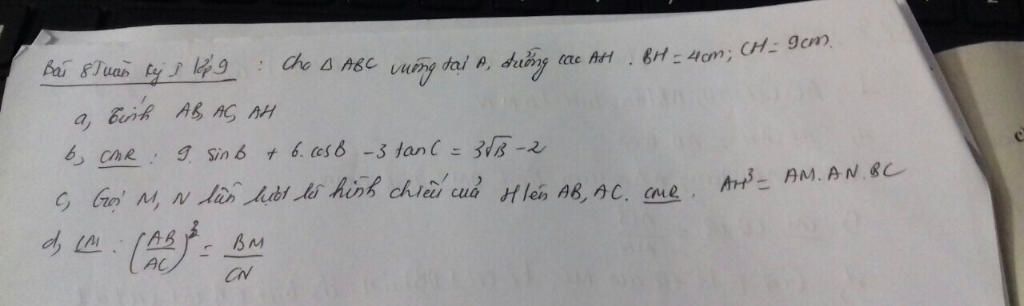 Bài 8 Tuần kỳ I lớp 9 : Cho △ ABC vuông tại A, đường cao AH . BH = 4cm; CH = 9cm.
a, Tính AB, AC, AH
b, CMR : 9. sinB + 6.cosB - 3 tanC = 3√13 - 2
c, Gọi M, N lần lượt là hình chiếu của H lên AB, AC. CMR . AH³ = AM.AN.BC
d, CM : (AB/AC)³ = BM/CN